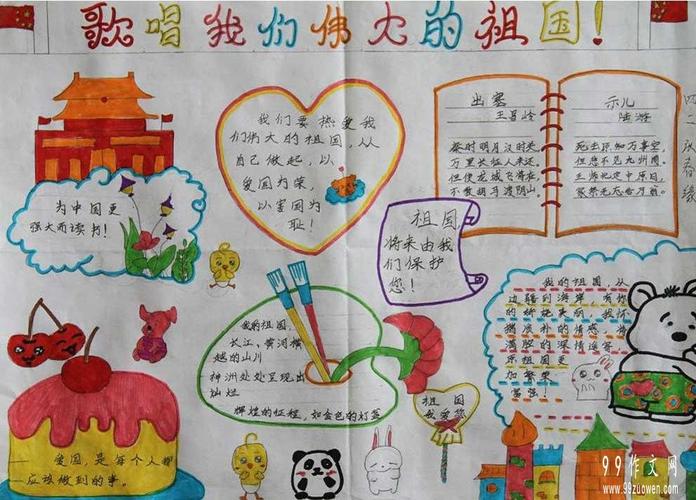 歌唱我们伟大的祖国!
为中国更
强大而读书!
我们要热爱我
们伟大的祖国,从
自己做起,以
爱国为荣,
以害国为
耻!
出塞
王昌龄
秦时明月汉时关
万里长征人未还,
但使龙城飞将在
不教胡马渡阴山。
示儿
陆游
死去原知万事空,
但悲不见九州同。
王师北定中原日,
家祭无忘告乃翁。
祖国
将来由我
们保护
您!
我的祖国,
长江、黄河横
越的山川
神洲处处呈现出
灿烂
辉煌的征程,如金色的灯盏
祖国
我爱您
我的祖国从
边疆到海岸有你
的绮艳美丽 我怀
着质朴的情感 情
满腔的深情
祖国更
加繁荣
富强!
爱国,是每个人都
应该做到的事。
99作文网
www.99zuowen.com